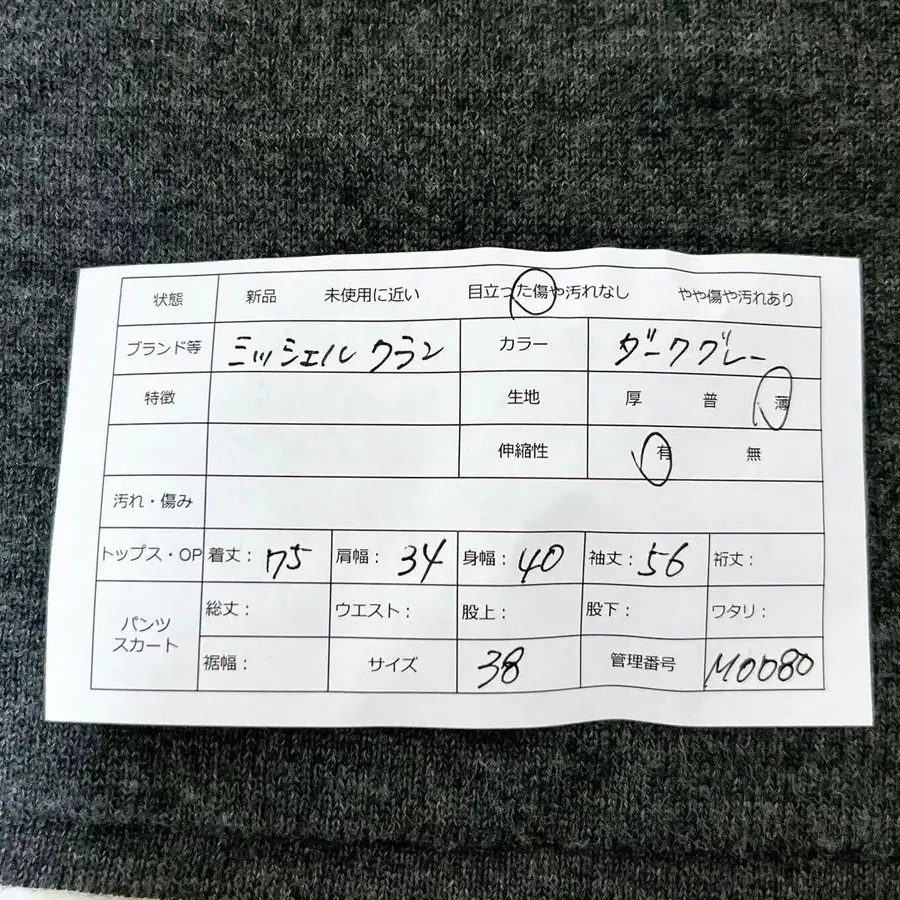 状態 新品 未使用に近い 目立った傷や汚れなし やや傷や汚れあり
ブランド等 ミッシェルクラン カラー ダークグレー
特徴 生地 厚 普 薄
伸縮性 有 無
汚れ・傷み
トップス・OP 着丈：75 肩幅：34 身幅：40 袖丈：56 裄丈：
パンツ スカート 総丈： ウエスト： 股上： 股下： ワタリ：
裾幅： サイズ 38 管理番号 M0080